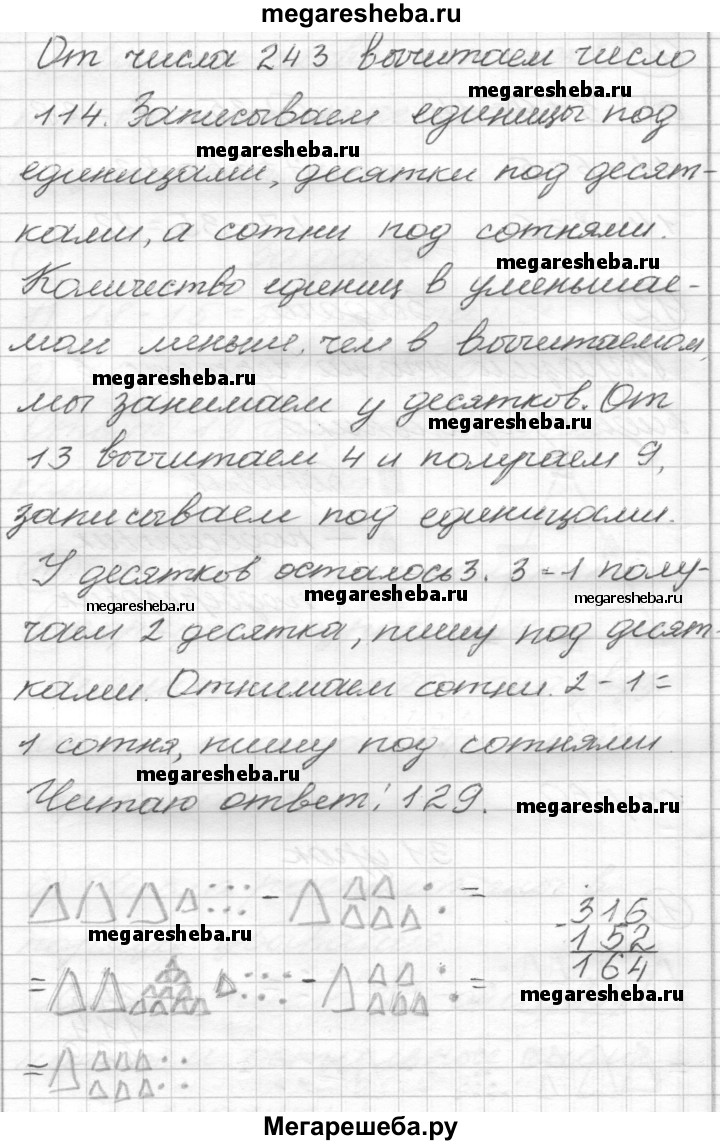 megaresheba.ru
От числа 243 вычитаем число
114. Записываем единицы под
megaresheba.ru
единицами, десятки под десят-
ками, а сотни под сотнями.
megaresheba.ru
Количество единиц в уменьшае-
мом меньше, чем в вычитаемом,
megaresheba.ru
мы занимаем у десятков. От
megaresheba.ru
13 вычитаем 4 и получаем 9,
записываем под единицами.
У десятков осталось 3. 3-1 полу-
megaresheba.ru megaresheba.ru megaresheba.ru
чаем 2 десятка, пишу под десят-
ками. Отнимаем сотни. 2-1=
1 сотня, пишу под сотнями.
megaresheba.ru
Читаю ответ: 129.
megaresheba.ru
- =
-316
152
164
megaresheba.ru
= - =
megaresheba.ru
=
Мегарешеба.ру